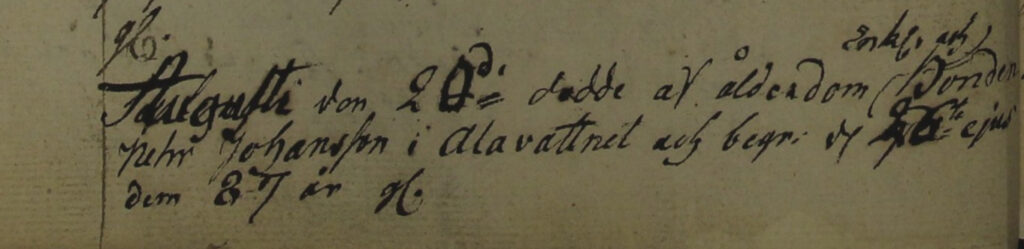 gl.
Enkl. och
Augusti den 20d. dödde af ålderdom Bonden
Pehr Johansson i Alavattnet och begr. d 26te ejus
dem 87 år gl.